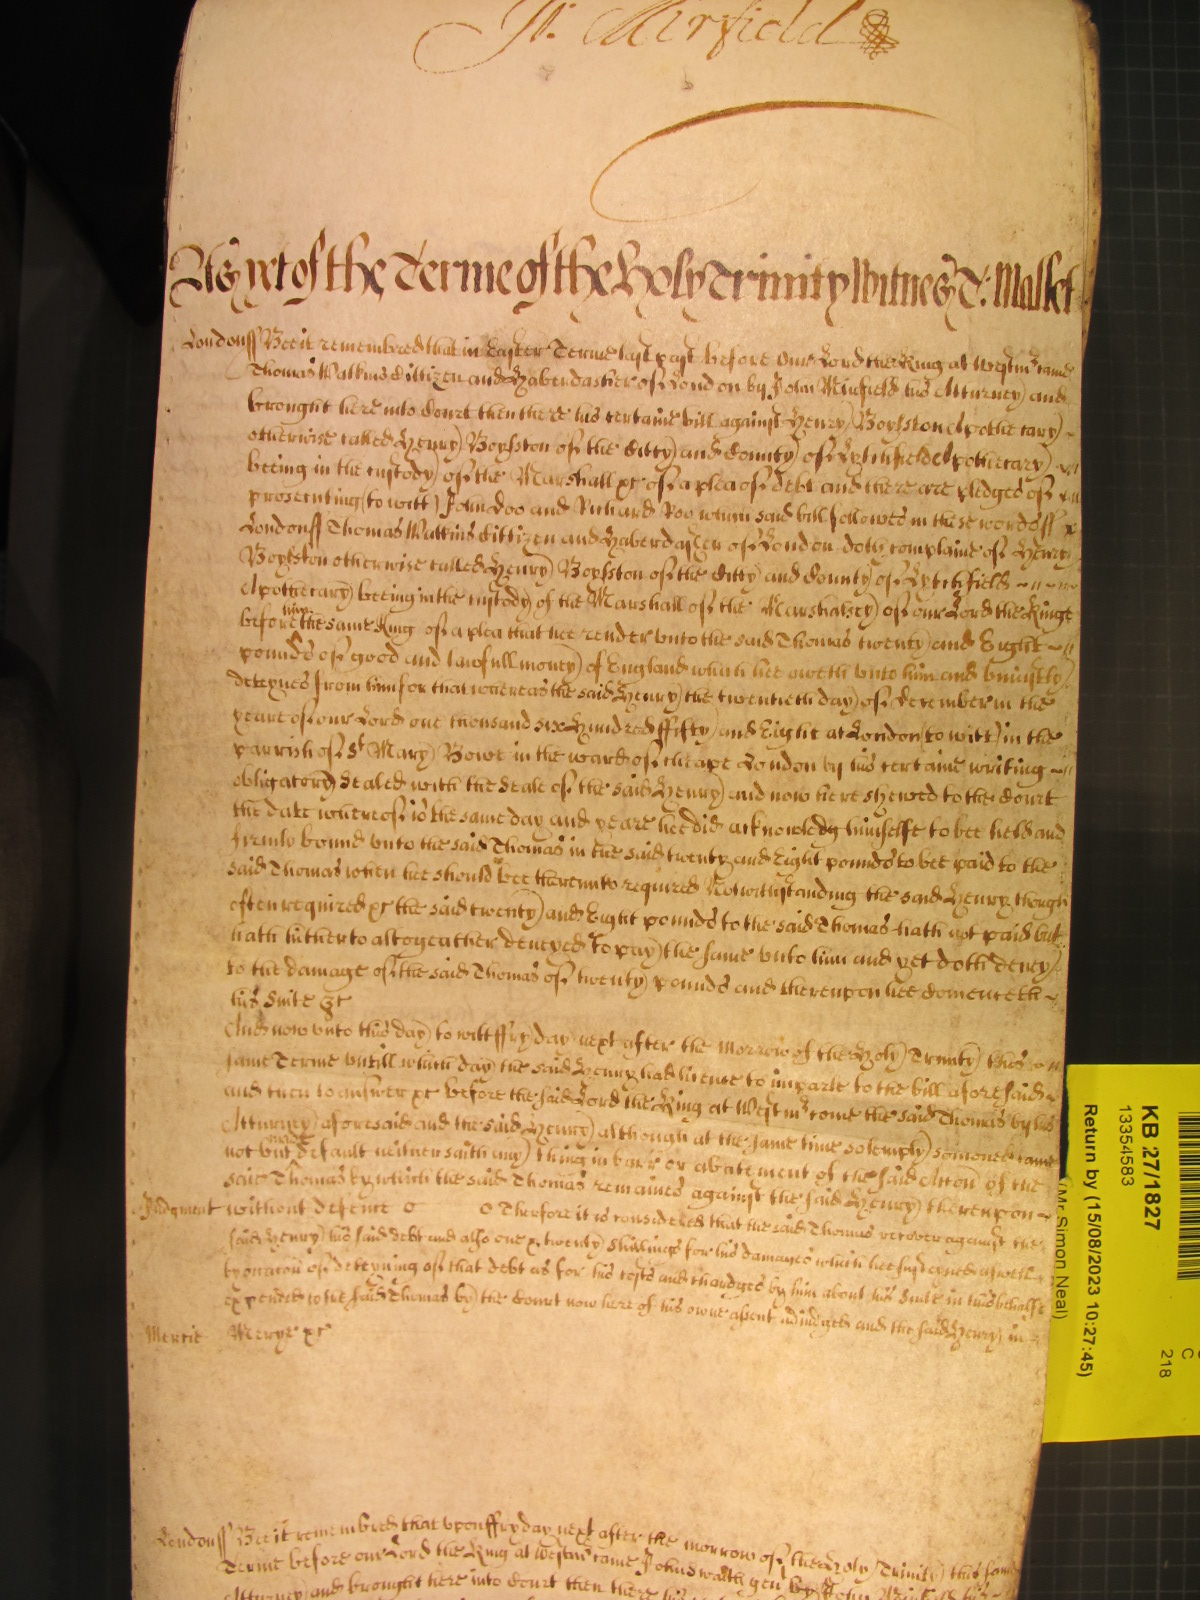 Jo: Mirfield
As yet of the Terme of the Holy Trinity Witnes T: Mallet
London ss Bee it remembred that in Easter Terme last past before our Lord the King at Westmr came
Thomas Watkins Cittizen and Haberdasher of London by John Mirfield his Atturney and
brought here into Court then there his certaine bill against Henry Boylston Apothecary
otherwise called Henry Boylston of the Citty and County of Lytchfield Apothecary
beeing in the custody of the Marshall &c of a plea of debt and there are pledges of
prosecuting (to witt) John Doo and Richard Roo which said bill followes in these words ss
London ss Thomas Watkins Cittizen and Haberdasher of London doth complaine of Henry
Boylston otherwise called Henry Boylston of the Citty and County of Lytchfield
Apothecary beeing in the custody of the Marshall of the Marshalsey of our Lord the Kinge
before the same King of a plea that hee render unto the said Thomas twenty and Eight
pounds of good and lawfull money of England which hee oweth unto him and uniustly
deteynes from him for that whereas the said Henry the twentieth day of December in the
yeare of our Lord one thousand six Hundred ffifty and Eight at London (to witt) in the
parrish of St Mary Bowe in the ward of Cheape London by his certaine writing
obligatory Sealed with the Seale of the said Henry and now here shewed to the Court
the date whereof is the same day and yeare hee did acknowledg himselfe to bee held and
firmly bound unto the said Thomas in the said twenty and Eight pounds to bee paid to the
said Thomas when hee should bee thereunto required Notwithstanding the said Henry though
often required &c the said twenty and Eight pounds to the said Thomas hath not paid but
hath hitherto altogeather denyed to pay the same unto him and yet doth deney
to the damage of the said Thomas of twenty pounds and thereupon hee
his Suite &c
And now unto this day to witt ffryday next after the morrow of the Holy Trinity this
same Terme untill which day the said Henry had licence to imparle to the bill aforesaid
and then to answer &c before the said Lord the King at Westmr come the said Thomas by his
Atturney aforesaid and the said Henry although at the same time solemply somoned came
not but made default neither saith any thing in barr or abatement of the said Accon of the
said Thomas by which the said Thomas remaines against the said Henry thereupon
Judgment without defence Therefore it is considered that the said Thomas recover against the
said Henry his said debt and also one & twenty shillings for his damages which hee susteyned aswell
by occacon of deteyning of that debt as for his costs and chardges by him about his Suite in this behalfe
expended to the said Thomas by the Court now here of his owne assent adiudged and the said Henry in
Mercie Mercye &c
London ss Bee it remembred that upon ffryday next after the morrow of the Holy Trinity this same
Terme before our Lord the King at Westmr came John gen by John Mirfield his
Atturney and brought here into Court then there his
KB 27/1827
13354583
Return by (15/08/2023 10:27:45)
(Mr Simon Neal)
C
218